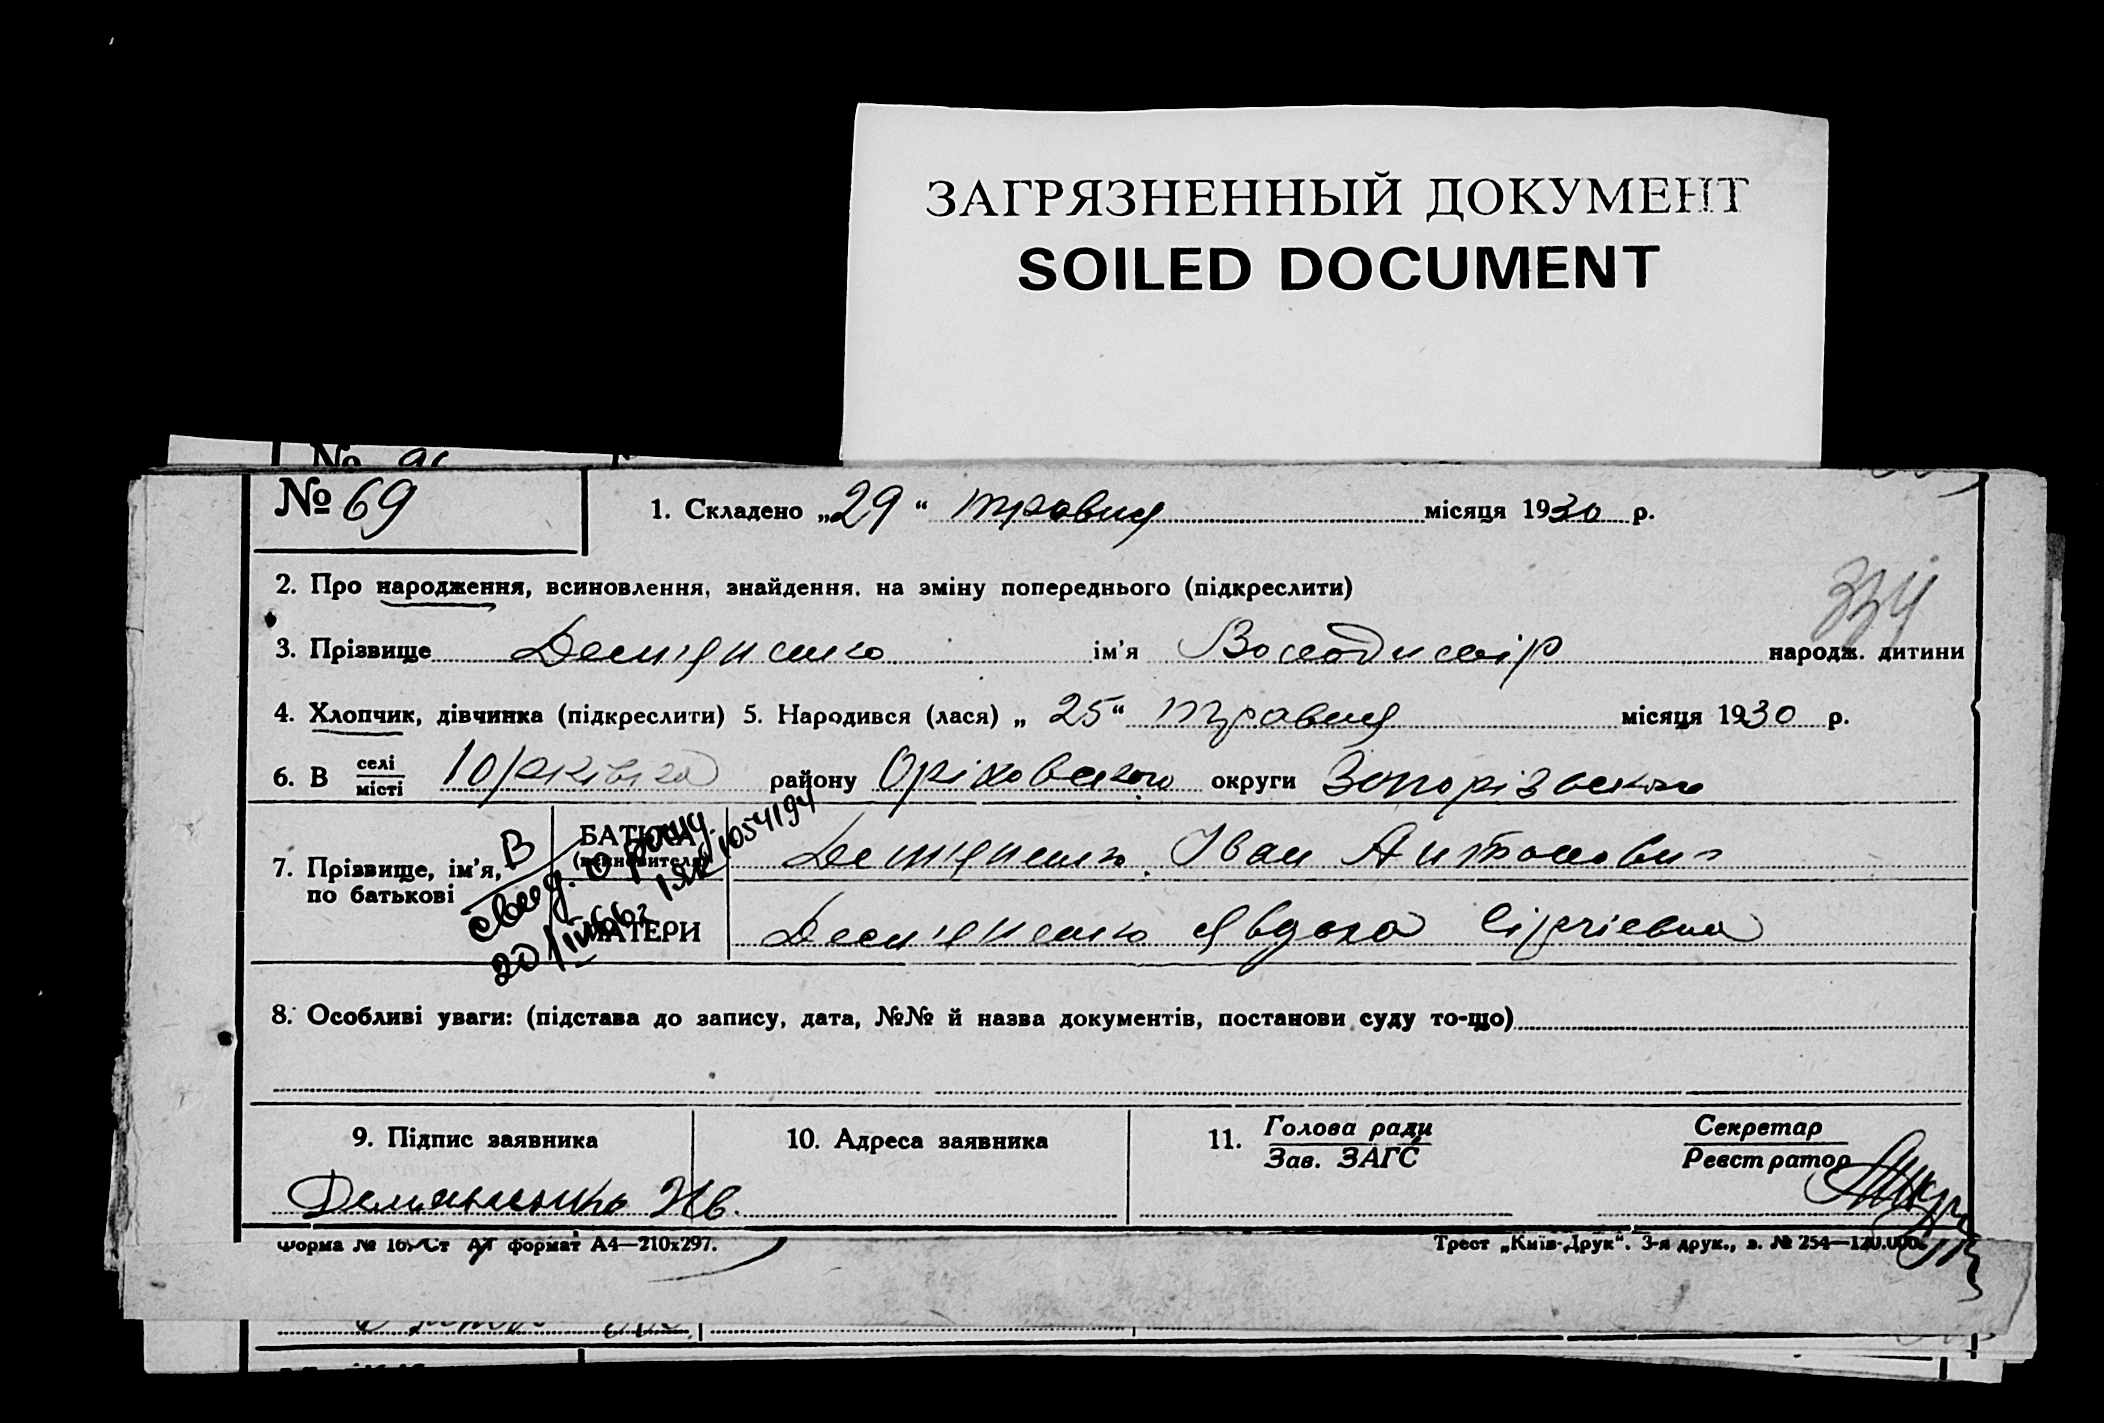 ЗАГРЯЗНЕННЫЙ ДОКУМЕНТ
SOILED DOCUMENT
№
№ 69
1. Складено „29“ травня місяця 1930 р.
2. Про народження, всиновлення, знайдення, на зміну попереднього (підкреслити)
334
3. Прізвище Демяненко ім'я Володимір народж. дитини
4. Хлопчик, дівчинка (підкреслити) 5. Народився (лася) „25“ травня місяця 1930 р.
6. В селі місті Юрківка району Оріховського округи Запорізької
7. Прізвище, ім'я, по батькові
БАТЬКА (всиновителя) Демяненко Іван Антонович
МАТЕРИ Демяненко Явдоха Сергіевна
В свид. о рожд.
1054194
8. Особливі уваги: (підстава до запису, дата, №№ й назва документів, постанови суду то-що)
9. Підпис заявника
10. Адреса заявника
11. Голова ради
Зав. ЗАГС
Секретар
Реєстратор
Демьяненко Ив.
Форма № 16 Ст формат А4—210х297.
Трест „Київ-Друк“. 3-я друк., з. № 254—120.000.